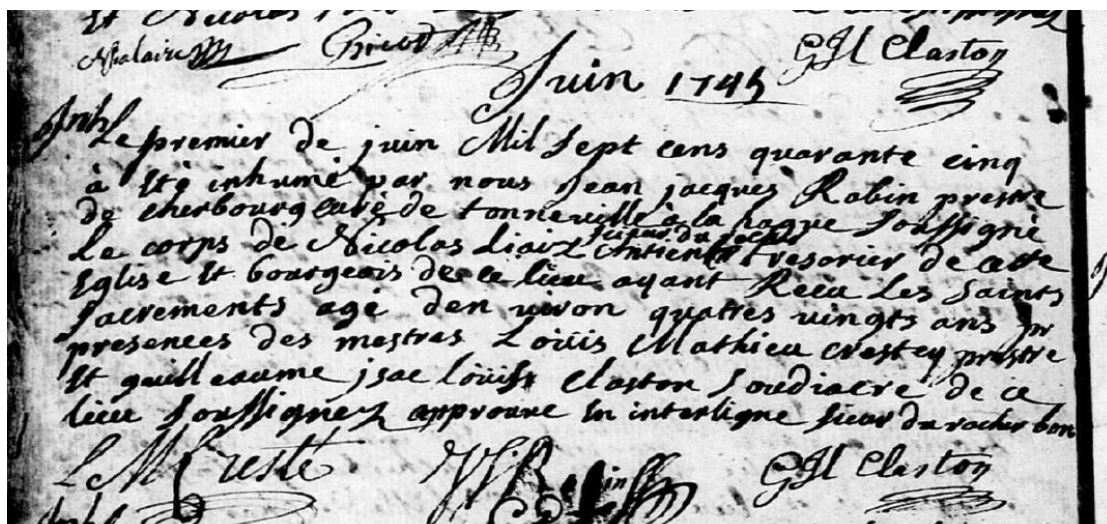 et Nicolas
GJL Claston
Juin 1745
Inh
Le premier de juin Mil Sept cens quarante cinq
à eté inhumé par nous Jean jacques Robin prestre
de cherbourg curé de tonneville à la hague soussigné
Le corps de Nicolas Liaiz sieur du rocher Antien tresorier de cette
Eglise et bourgeois de ce lieu ayant Receu Les saints
sacrements agé denviron quatres vingts ans pr
presences des mestres Loüis Mathieu crestey prestre
et guilleaume jsac loüis Claston soudiacre de ce
lieu soussignez approuve en interligne sieur du rocher bon
LM Cresté Robin GJL Claston